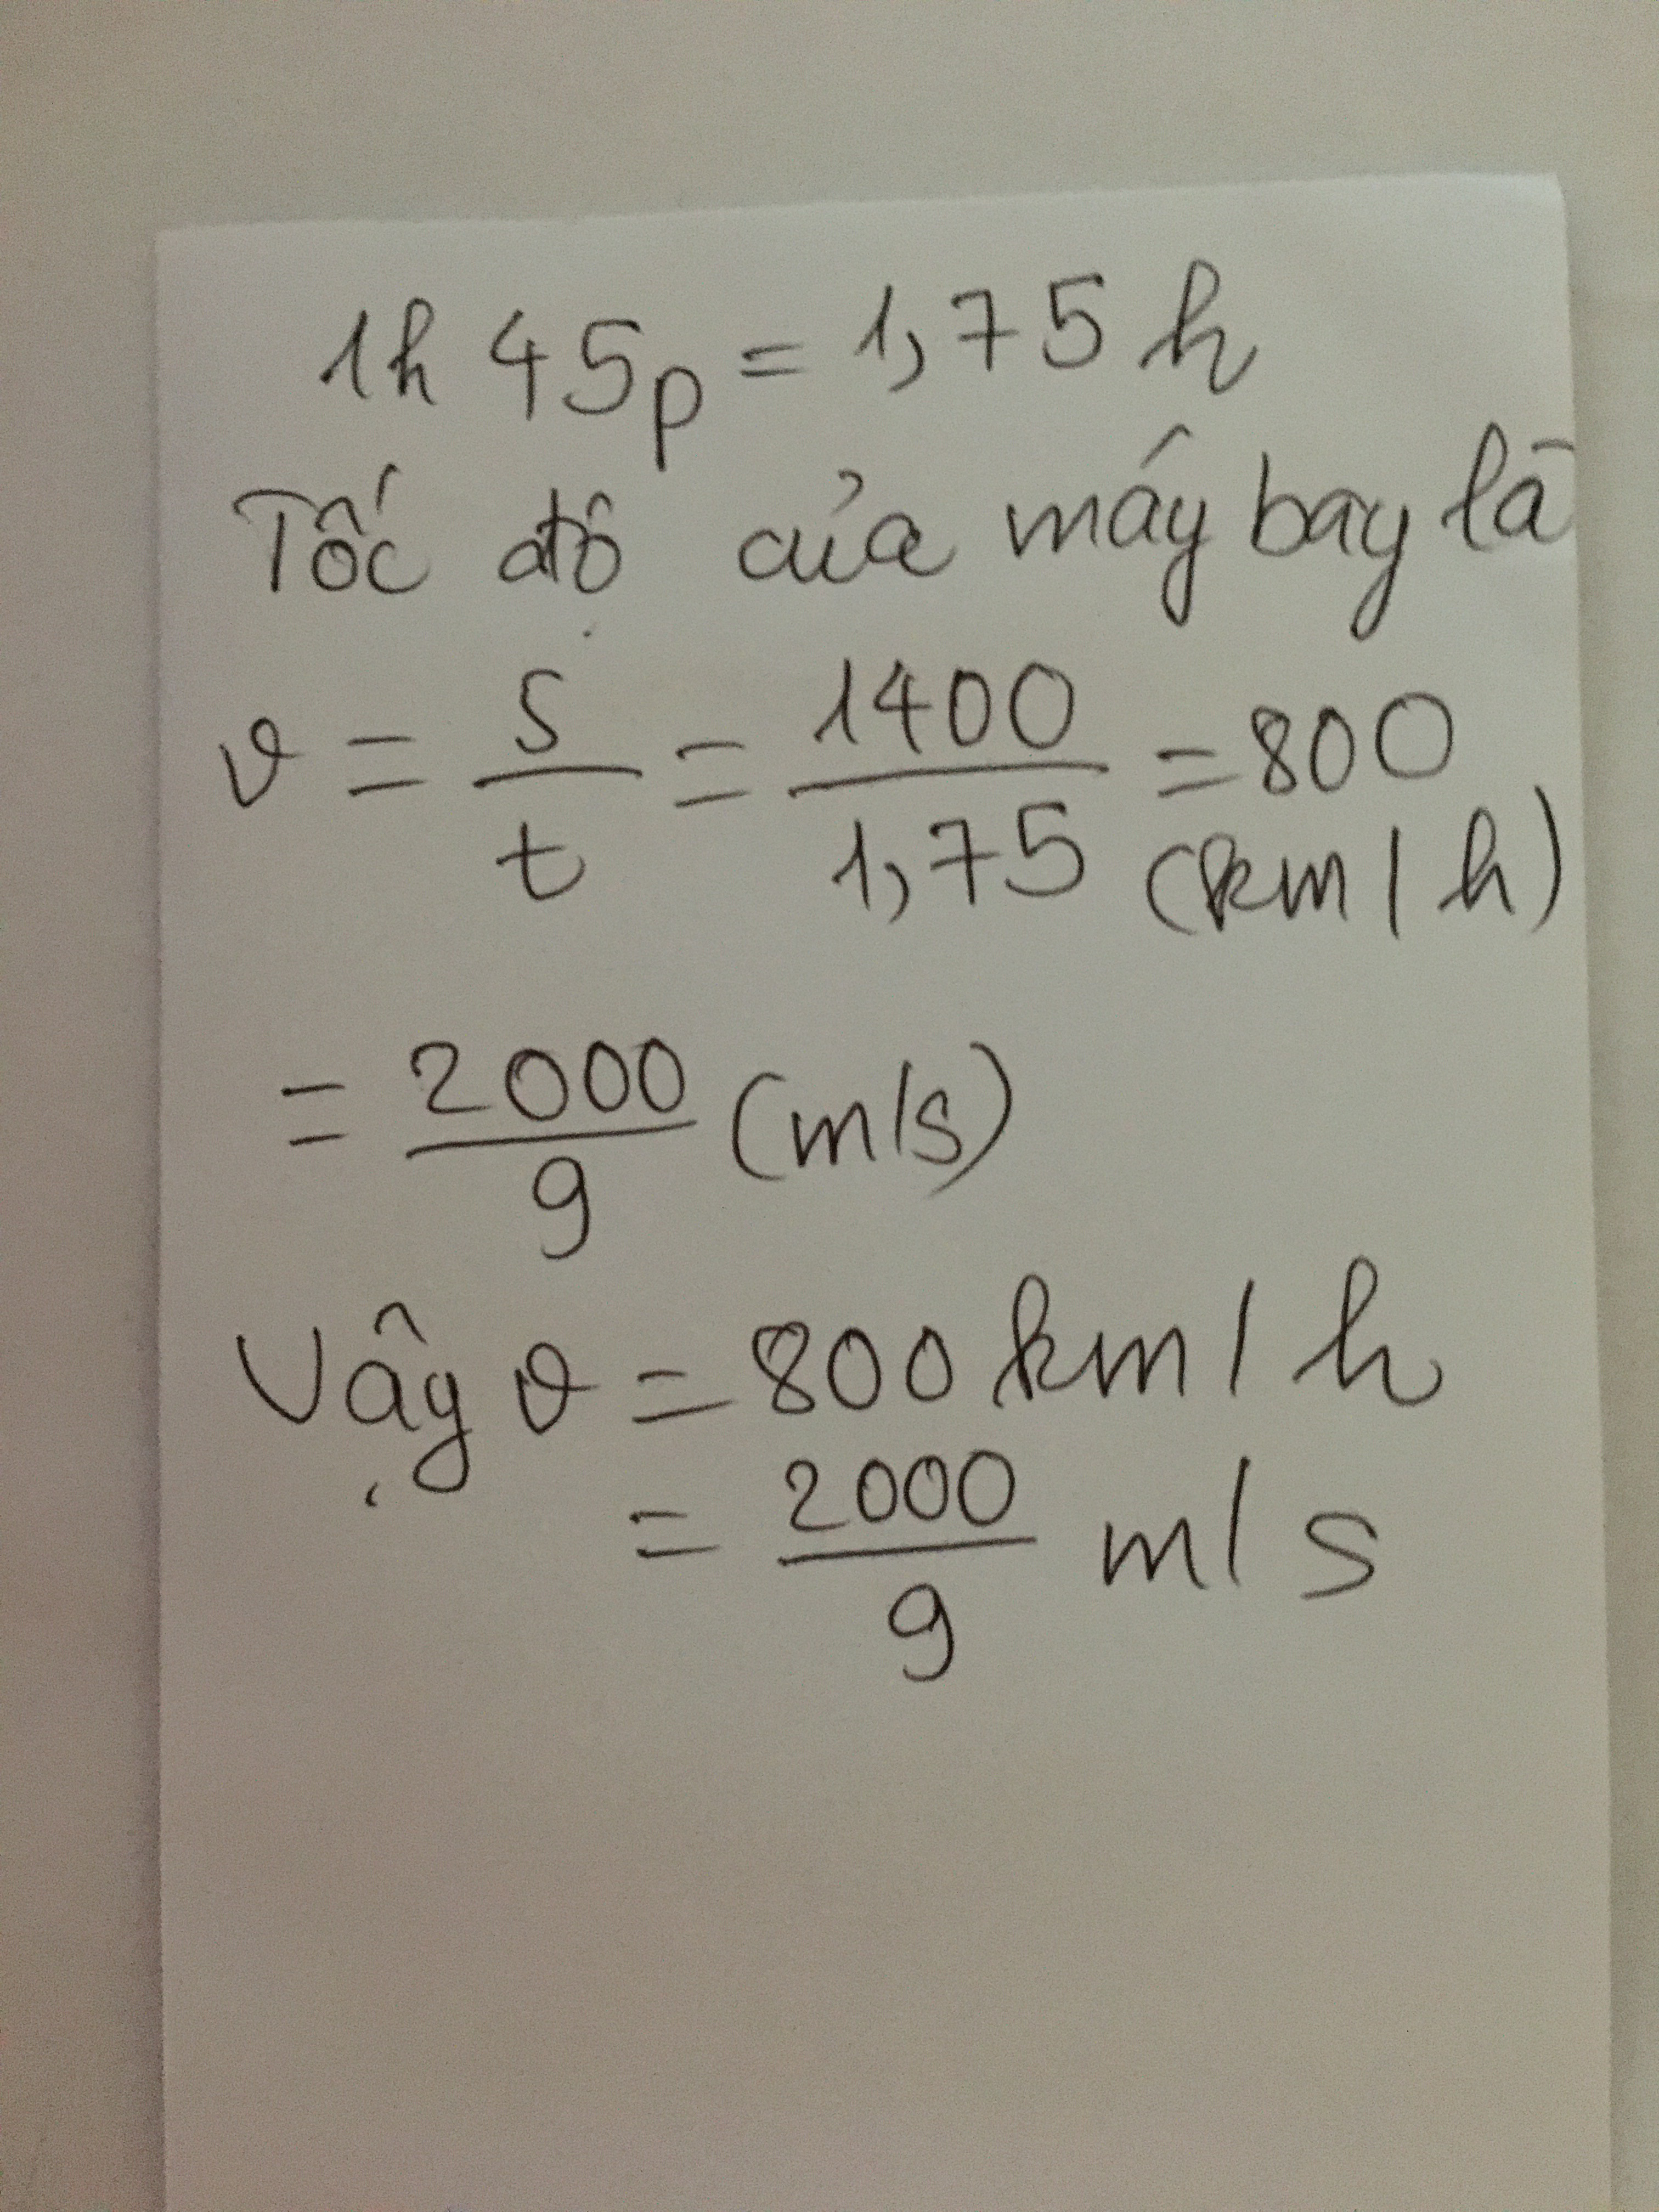 1h 45p = 1,75 h
Tốc độ của máy bay là
v = s/t = 1400/1,75 = 800
(km/h)
= 2000/9 (m/s)
Vậy v = 800 km/h
= 2000/9 m/s